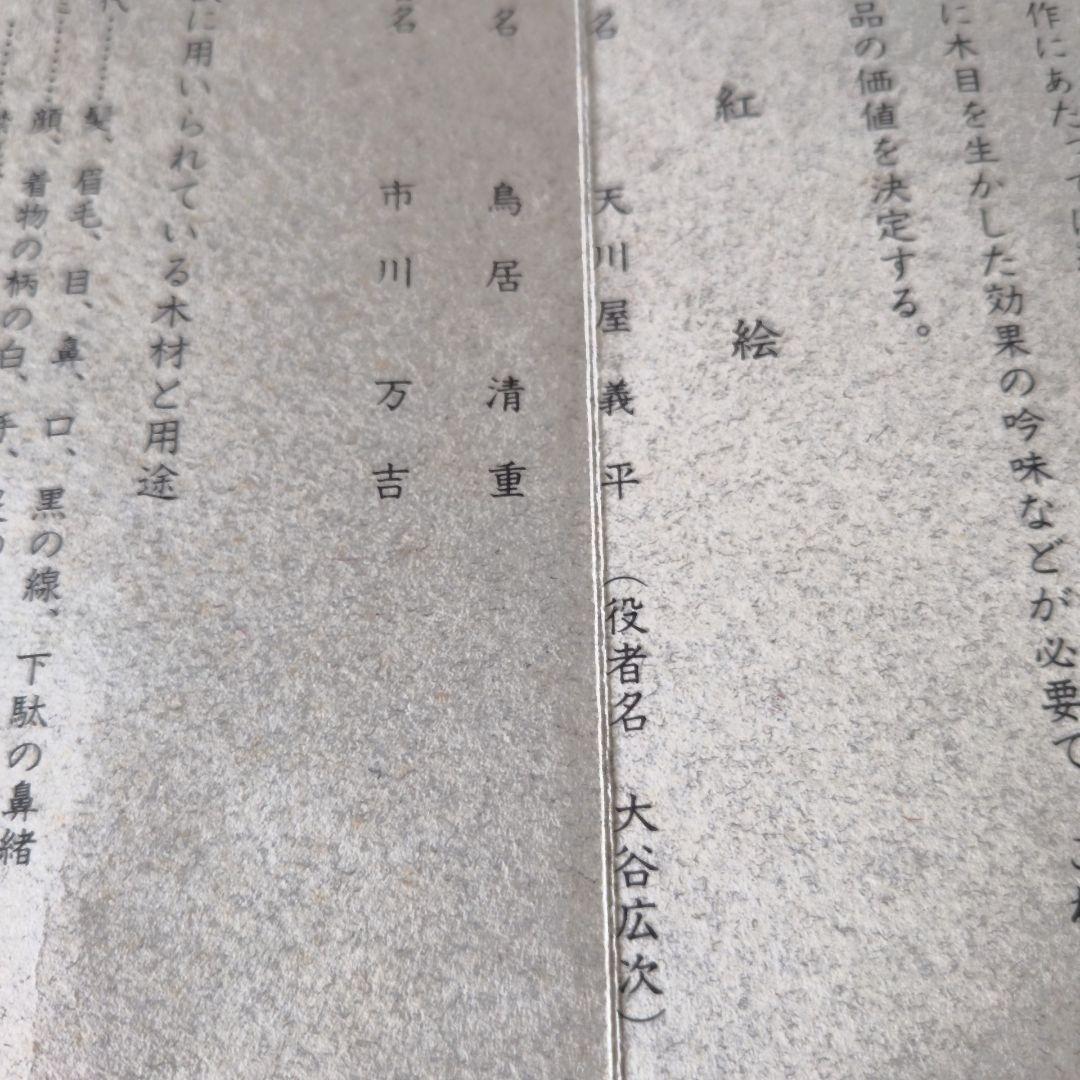 作にあたっては
に木目を生かした効果の吟味などが必要で
品の価値を決定する。
紅絵
名 天川屋義平 (役者名 大谷広次)
名 鳥居清重
名 市川万吉
に用いられている木材と用途
髪、眉毛、目、鼻、口、黒の線、下駄の鼻緒
顔、着物の柄の白、手、